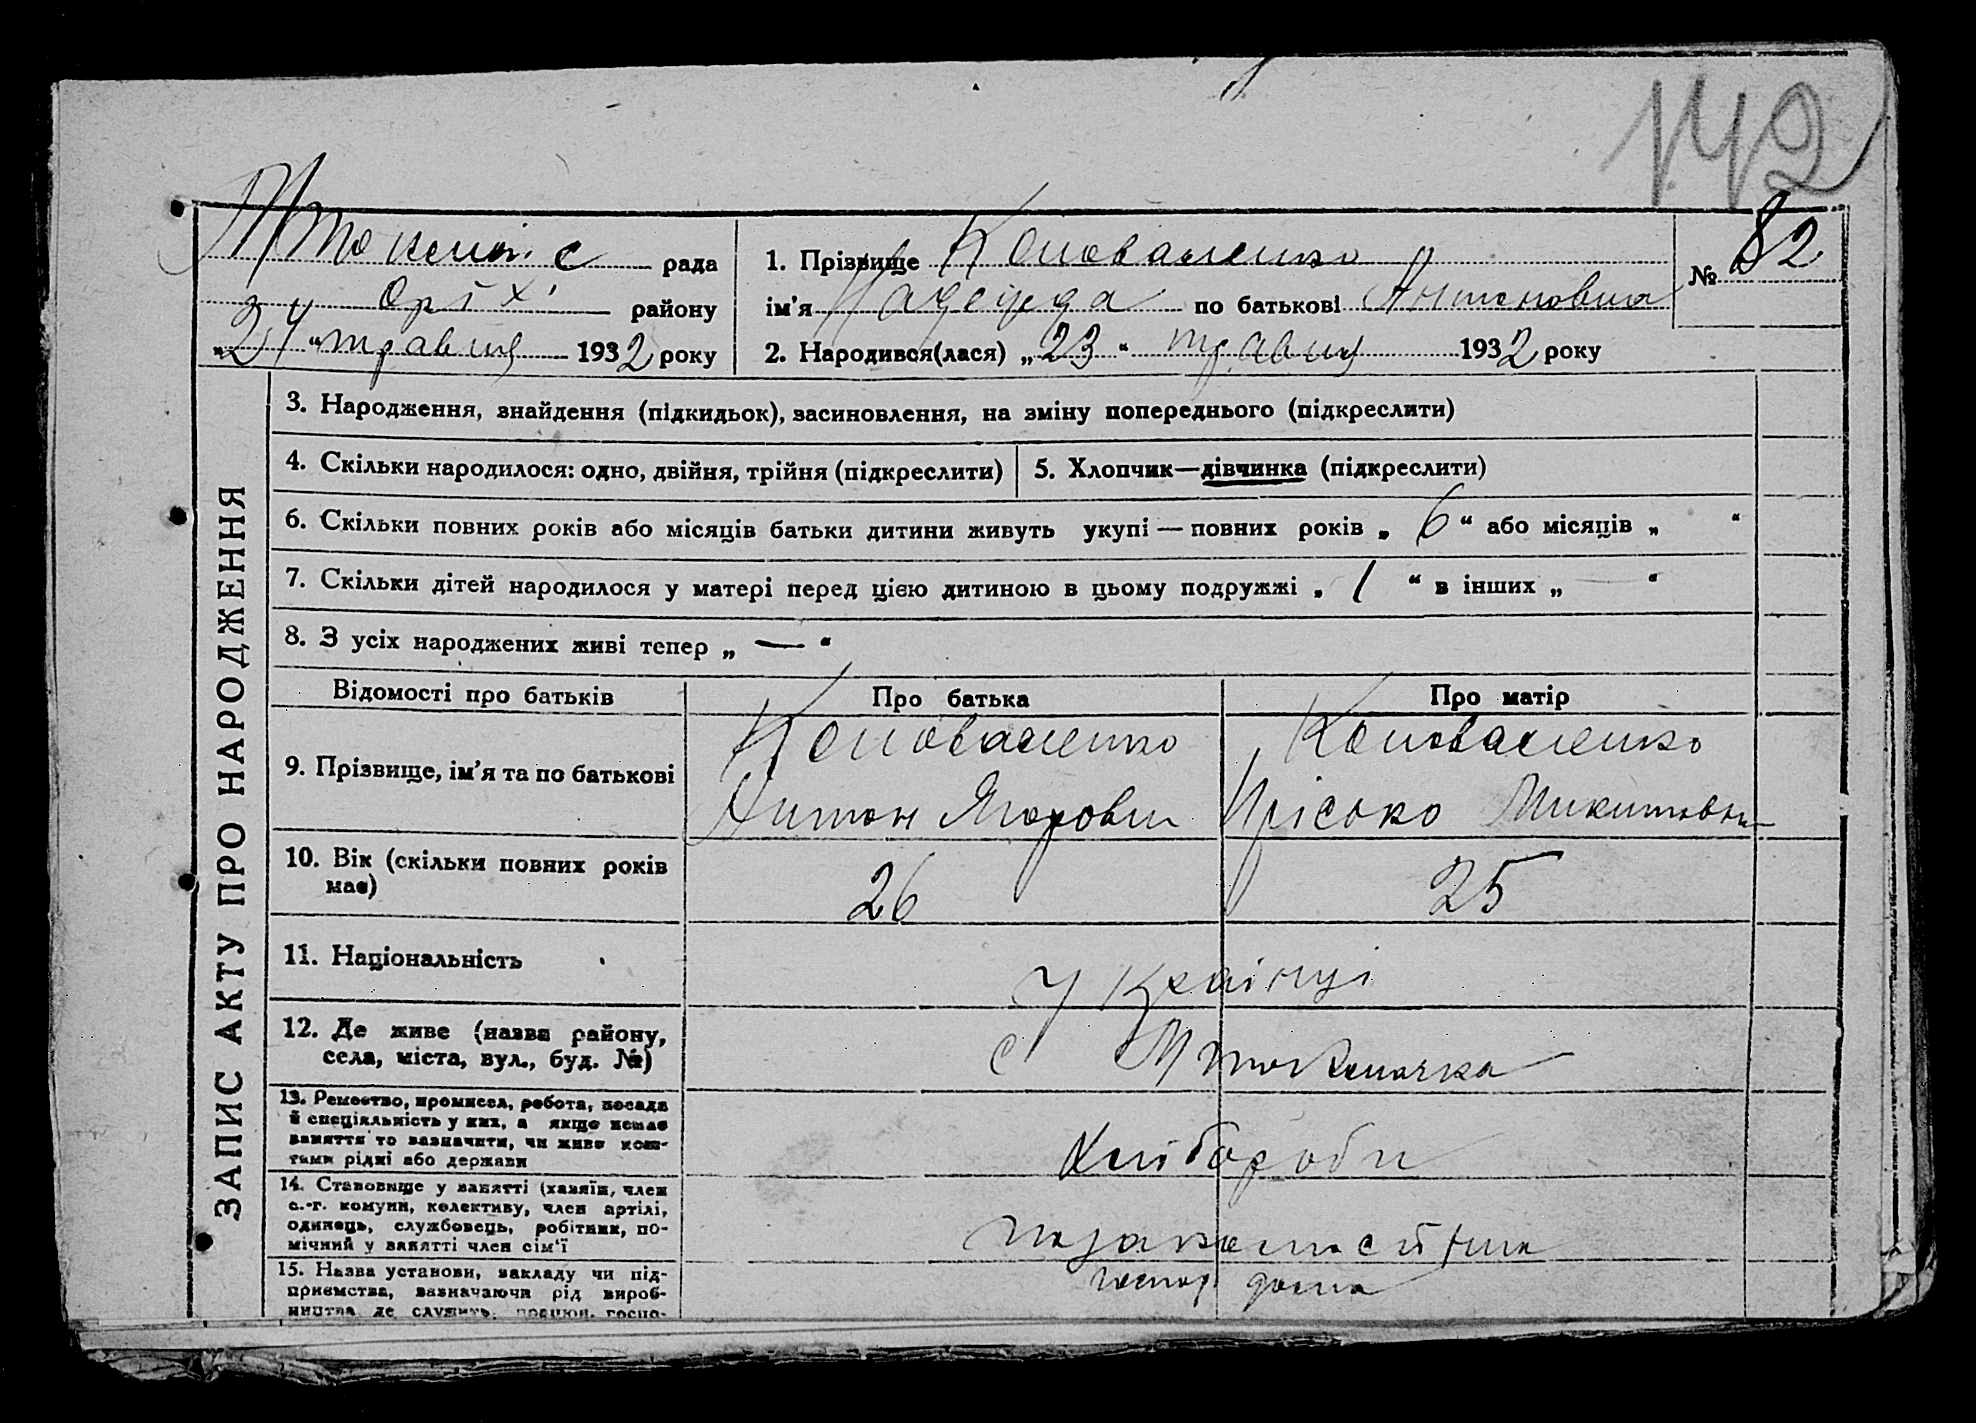 142
рада
1. Прізвище Коноваленко
№ 82
Оріх. району
ім'я Надежда по батькові Антоновна
„24“ травня 1932 року
2. Народився(лася) „23“ травня 1932 року
ЗАПИС АКТУ ПРО НАРОДЖЕННЯ
3. Народження, знайдення (підкидьок), засиновлення, на зміну попереднього (підкреслити)
4. Скільки народилося: одно, двійня, трійня (підкреслити)
5. Хлопчик—дівчинка (підкреслити)
6. Скільки повних років або місяців батьки дитини живуть укупі — повних років „ 6 “ або місяців „ “
7. Скільки дітей народилося у матері перед цією дитиною в цьому подружжі „ 1 “ в інших „ — “
8. З усіх народжених живі тепер „ — “
Відомості про батьків
Про батька
Про матір
9. Прізвище, ім'я та по батькові
Коноваленко
Антон Ягорович
Коноваленко
Пріська Микитовна
10. Вік (скільки повних років має)
26
25
11. Національність
Українці
12. Де живе (назва району,
села, міста, вул., буд. №)
с
13. Ремество, промисел, робота, посада
й спеціяльність у них, а якщо немає
заняття то зазначити, чи живе кош-
тами рідні або держави
Хлібороби
14. Становище у занятті (хазяїн, член
с.-г. комуни, колективу, член артілі,
одинець, службовець, робітник, по-
мічний у занятті член сім'ї
15. Назва установи, закладу чи під-
приємства, зазначаючи рід вироб-
ництва де служить, працює, госпо-